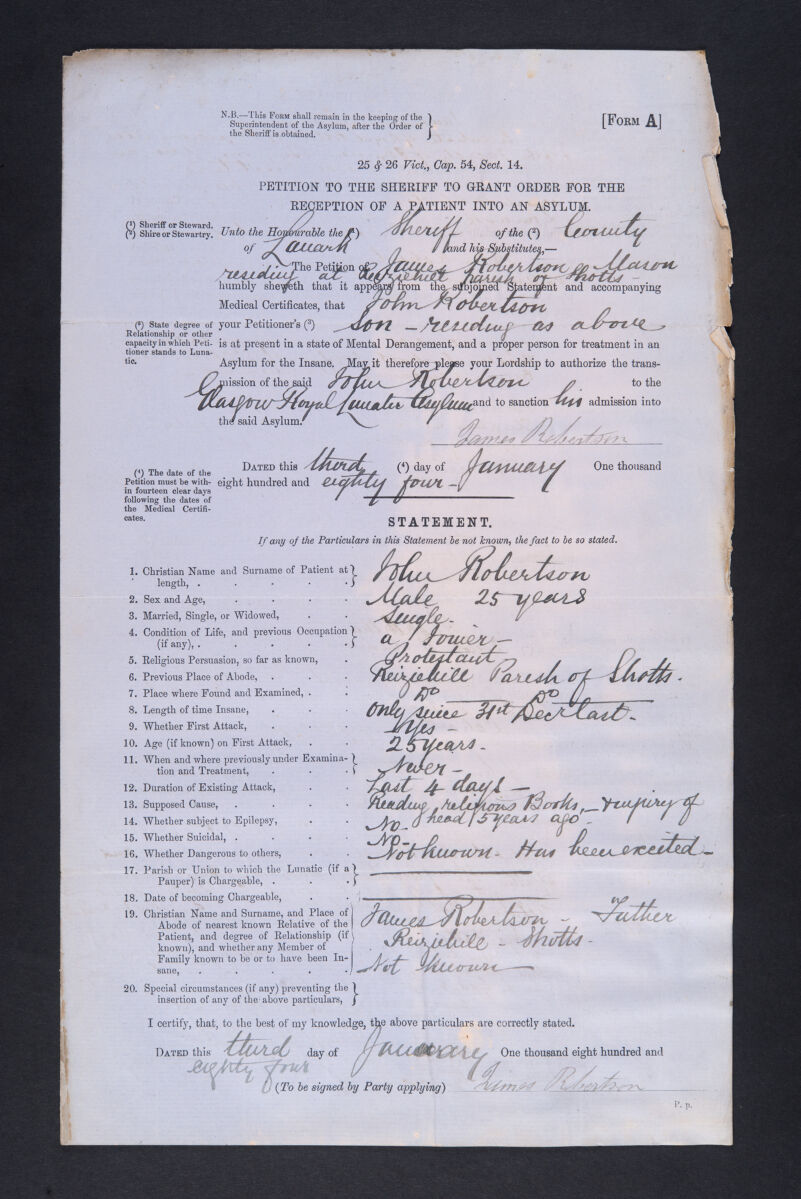 N.B.—This Form shall remain in the keeping of the
Superintendent of the Asylum, after the Order of
the Sheriff is obtained.
[Form A]
25 & 26 Vict., Cap. 54, Sect. 14.
PETITION TO THE SHERIFF TO GRANT ORDER FOR THE
RECEPTION OF A PATIENT INTO AN ASYLUM.
(¹) Sheriff or Steward.
(²) Shire or Stewartry.
Unto the Honourable the (¹) Sheriff of the (²) County
of Lanark and his Substitutes,—
The Petition of James Robertson a Mason
residing at parish of Shotts
humbly sheweth that it appears from the subjoined Statement and accompanying
Medical Certificates, that John Robertson
(³) State degree of
Relationship or other
capacity in which Peti-
tioner stands to Luna-
tic.
your Petitioner's (³) son - residing as above
is at present in a state of Mental Derangement, and a proper person for treatment in an
Asylum for the Insane. May it therefore please your Lordship to authorize the trans-
mission of the said John Robertson to the
Glasgow Royal Lunatic Asylum and to sanction his admission into
the said Asylum.
James Robertson
(⁴) The date of the
Petition must be with-
in fourteen clear days
following the dates of
the Medical Certifi-
cates.
Dated this third (⁴) day of January One thousand
eight hundred and eighty four -
STATEMENT.
If any of the Particulars in this Statement be not known, the fact to be so stated.
1. Christian Name and Surname of Patient at
length, . John Robertson
2. Sex and Age, Male 25 years
3. Married, Single, or Widowed, Single.
4. Condition of Life, and previous Occupation
(if any), . a Joiner -
5. Religious Persuasion, so far as known, Protestant
6. Previous Place of Abode, . Parish of Shotts.
7. Place where Found and Examined, . Do Do
8. Length of time Insane, Only since 31st Decr last.
9. Whether First Attack, Yes -
10. Age (if known) on First Attack, 25 years -
11. When and where previously under Examina-
tion and Treatment, Never -
12. Duration of Existing Attack, Last 4 days -
13. Supposed Cause, Reading religious Books, - & injury of
head 5 years ago -
14. Whether subject to Epilepsy, No -
15. Whether Suicidal, . No -
16. Whether Dangerous to others, Not known - Has been excited -
17. Parish or Union to which the Lunatic (if a
Pauper) is Chargeable, .
18. Date of becoming Chargeable,
19. Christian Name and Surname, and Place of
Abode of nearest known Relative of the
Patient, and degree of Relationship (if
known), and whether any Member of
Family known to be or to have been In-
sane, .
James Robertson - Father
Shotts -
Not known
20. Special circumstances (if any) preventing the
insertion of any of the above particulars,
I certify, that, to the best of my knowledge, the above particulars are correctly stated.
Dated this third day of January One thousand eight hundred and
eighty four
(To be signed by Party applying) James Robertson
P. p.